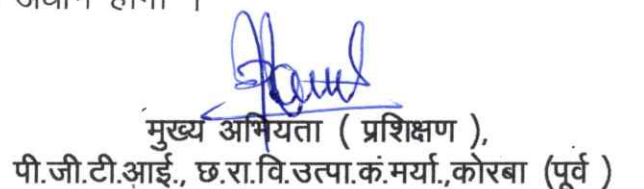 अधीन होगी ।
मुख्य अभियंता ( प्रशिक्षण ),
पी.जी.टी.आई., छ.रा.वि.उत्पा.कं.मर्या.,कोरबा (पूर्व )